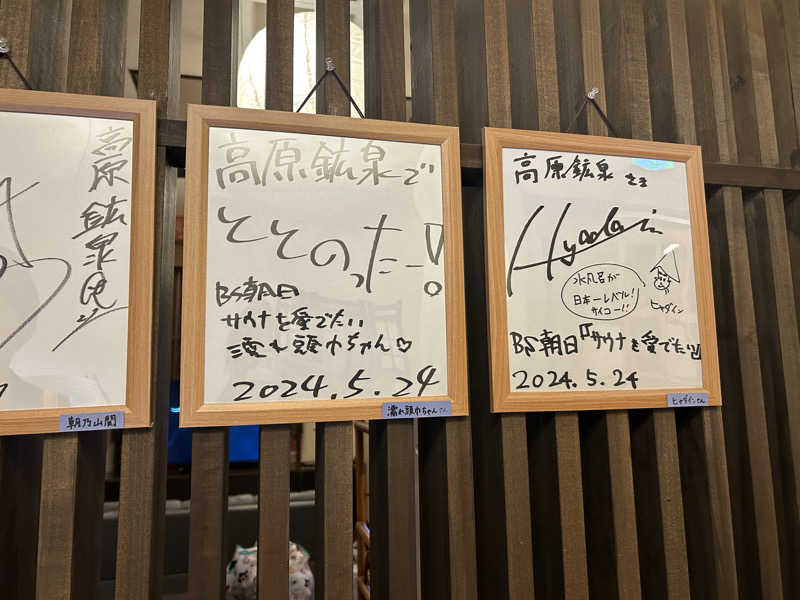 高原鉱泉さん江
朝乃山関
高原鉱泉で
ととのったー!
BS朝日
サウナを愛でたい
濡れ頭巾ちゃん♡
2024.5.24
濡れ頭巾ちゃんさん
高原鉱泉さま
Hyadain
水風呂が
日本一レベル!
サイコー!!
ヒャダイン
BS朝日『サウナを愛でたい』
2024.5.24
ヒャダインさん